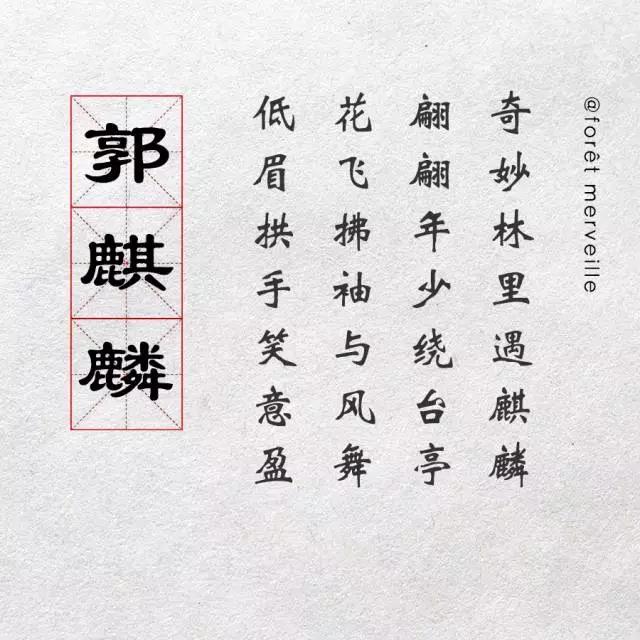 @forêt merveille
奇妙林里遇麒麟
翩翩年少绕台亭
花飞拂袖与风舞
低眉拱手笑意盈
郭麒麟